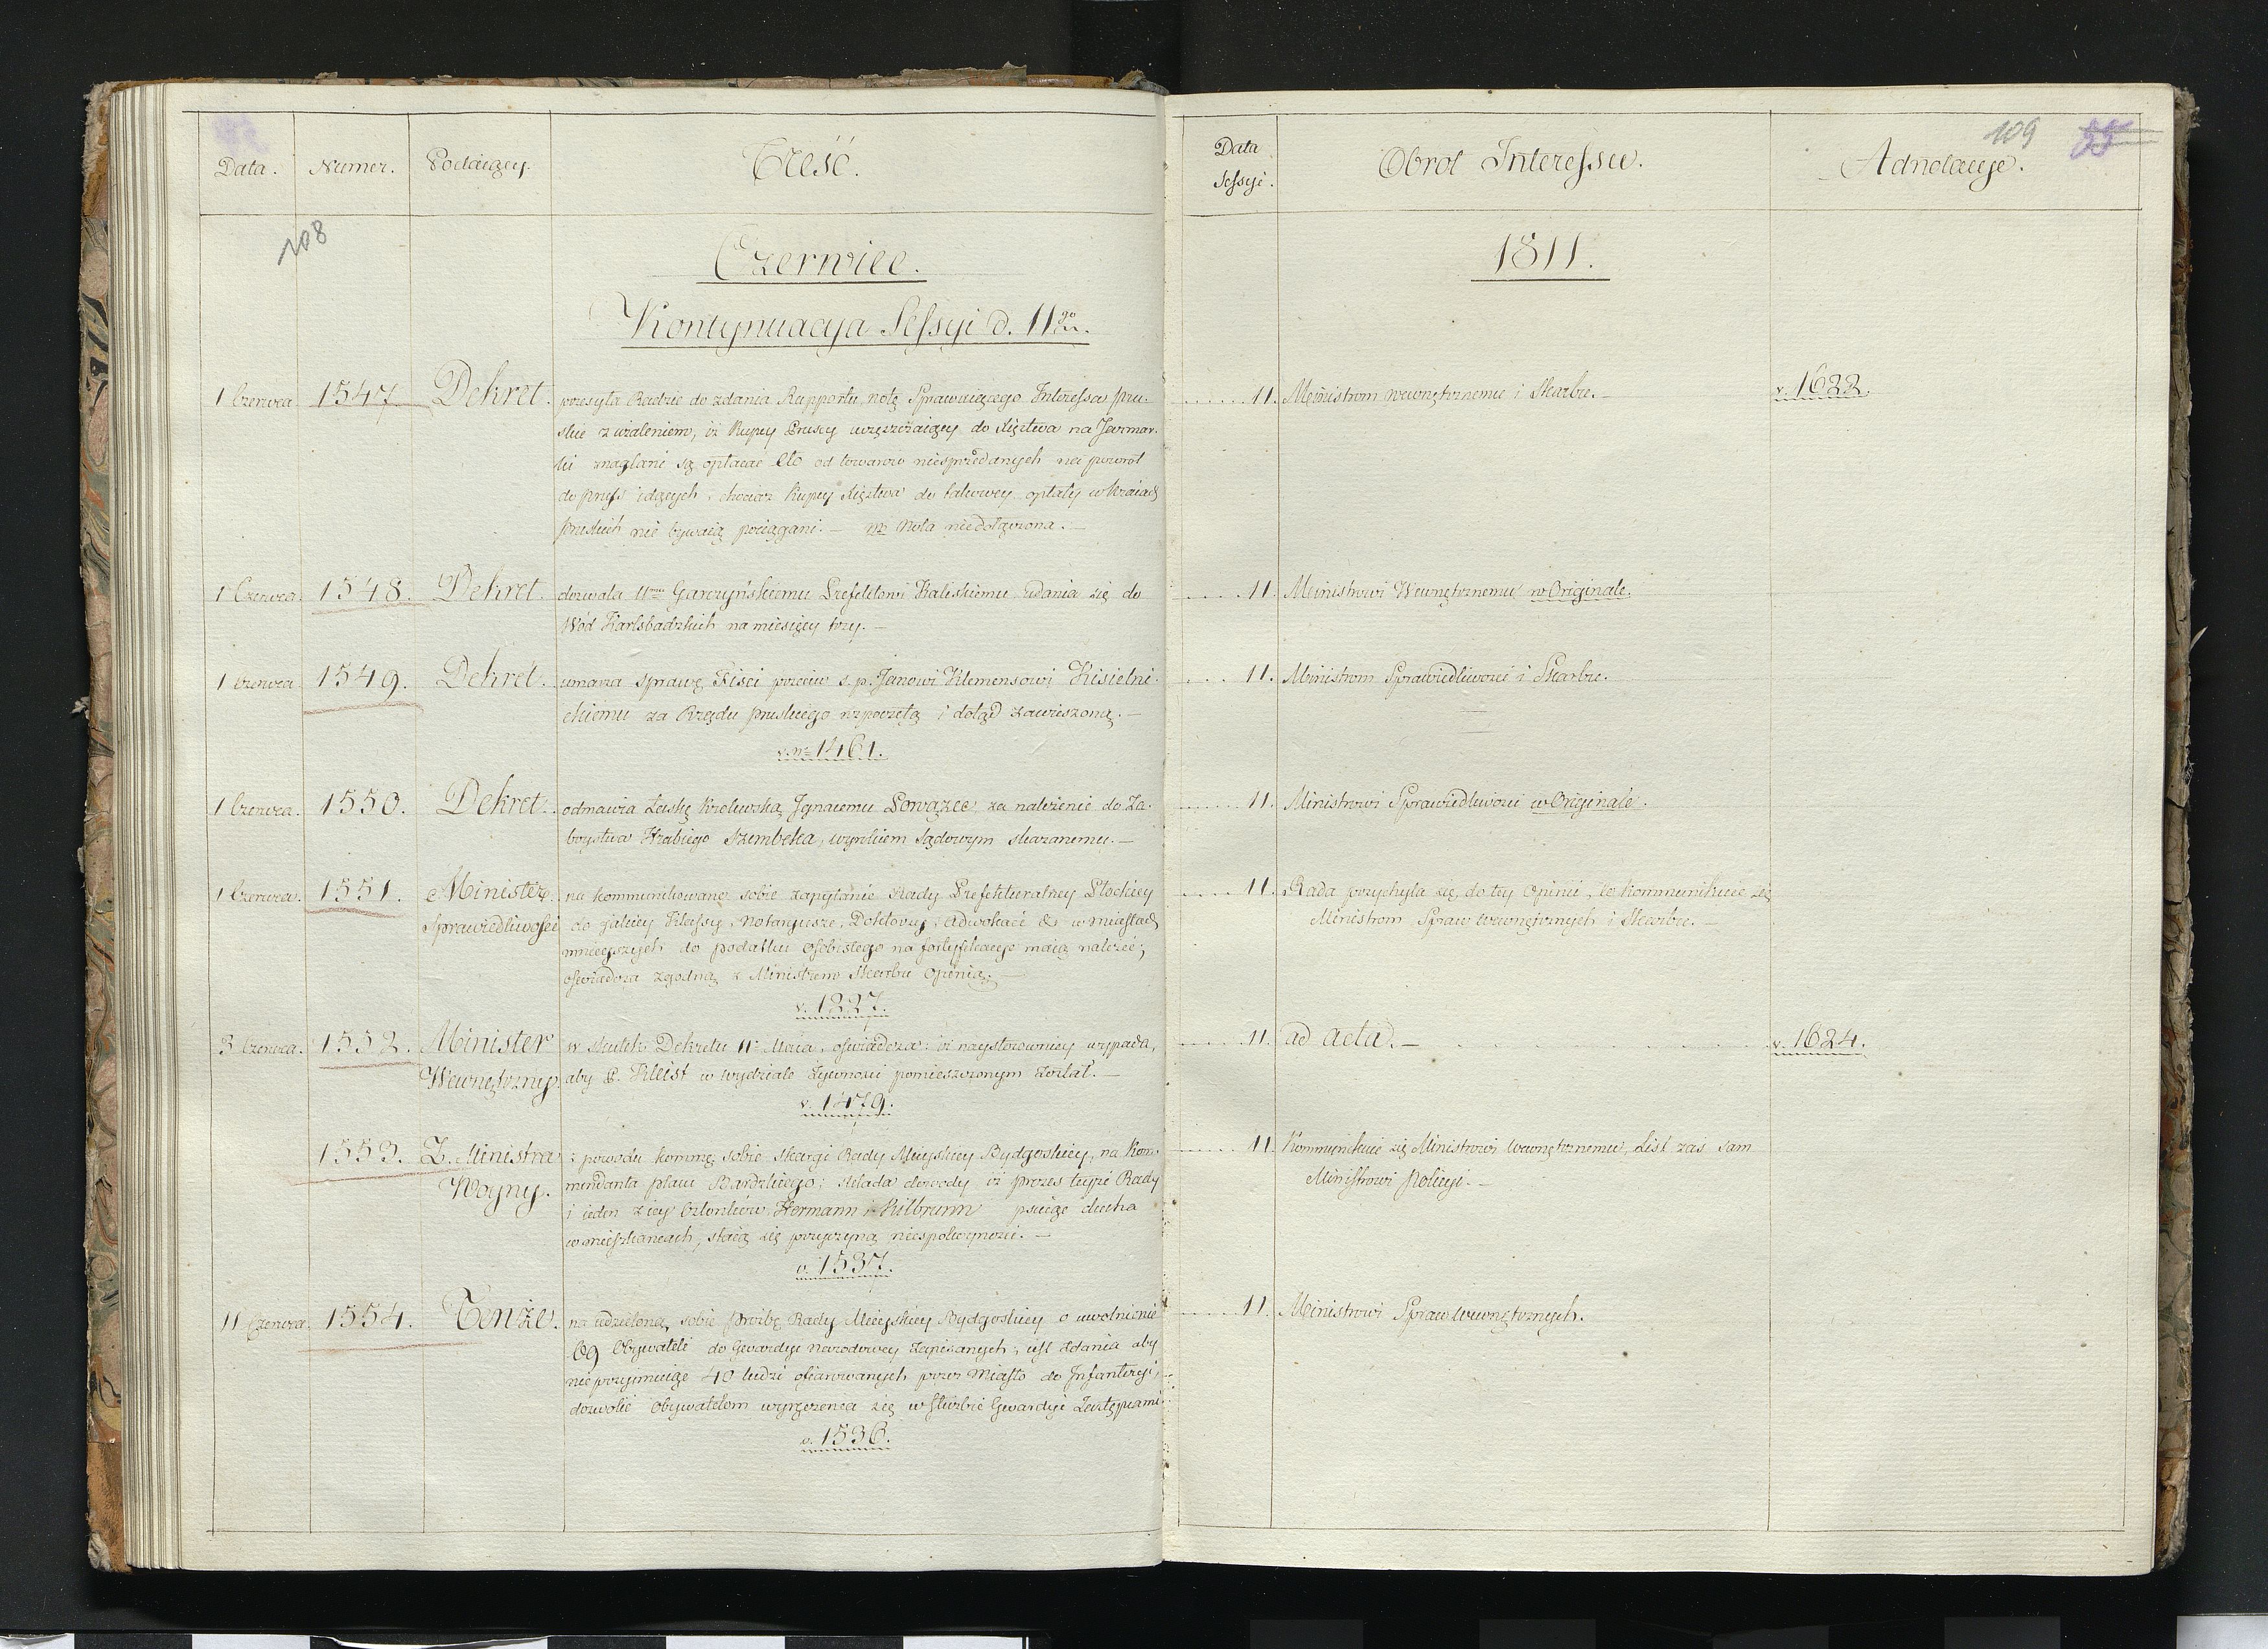 Data. Numer. Podaiący. Treść.
108
Czerwiec.
Kontynuacya Sessyi d. 11go
1 Czerwca. 1547. Dekret. przesyła Radzie do zdania Rapportu notę Sprawuiącego Interessa Pru-
skie z użaleniem, iż Kupcy Pruscy uczęszczaiący do Xięztwa na Jarmar-
ki znaglani są opłacac Cło od towarów niesprzedanych na powrót
do Pruss idących, chociaz Kupcy Xięztwa do takowey opłaty w Kraiach
Pruskich nie bywaią pociągani. — NB Nota niedołączona. —
1 Czerwca. 1548. Dekret. dozwala Umu Garczyńskiemu Prefektowi Kaliskiemu udania się do
Wód Karlsbadzkich na miesięcy trzy. —
1 Czerwca 1549. Dekret. umarza sprawę Fisci przeciw s.p. Janowi Klemensowi Kisielni-
ckiemu za Rządu Pruskiego rozpoczętą i dotąd zawieszoną. —
v. nr 1461.
1 Czerwca. 1550. Dekret. odmawia Łaskę Krolewską Ignacemu Powązce za należenie do Za-
boystwa Hrabiego Szembeka, wyrokiem Sądowym skazanemu. —
1 Czerwca. 1551. Minister na kommunikowane sobie zapytanie Rady Prefekturalney Płockiey
Sprawiedliwości do jakiey Klassy, Notaryusze, Doktorzy, Adwokaci & w miastach
mnieyszych do podatku osobistego na fortyfikacye maią należeć;
oświadcza zgodną z Ministrem Skarbu Opinią. —
v. 1227.
3 Czerwca. 1552. Minister w skutek Dekretu 11 Maia, oświadcza: iż naystosowniey wypada,
Wewnętrzny. aby P. Kleist w wydziale Żywności pomieszczonym został. —
v. 1479.
1553. Z. Ministra z powodu kommu: sobie skargi Rady Mieyskiey Bydgoskiey, na Kom-
Woyny. mendanta placu Bardzkiego; składa dowody iż prezes teyże Rady
i ieden z iey Członków Hermann i Kilbrunn psuiąc ducha
w mieszkancach, staią się przyczyną niespokoyności. —
v. 1537.
11 Czerwca. 1554. Tenże. na udzieloną sobie prośbę Rady Mieyskiey Bydgoskiey o uwolnienie
69 Obywateli do Gwardyi Narodowey zapisanych; iest zdania aby
nie przyimuiąc 40 ludzi ofiarowanych przez Miasto do Infanteryi,
dozwolić Obywatelom wyręczenia się w służbie Gwardyi Zastępcami.
v. 1536.
Data Sessyi. Obrot Interessu. Adnotacye.
109 55
1811.
11. Ministrom Wewnętrznemu i Skarbu. — v. 1622.
11. Ministrowi Wewnętrznemu w Originale.
11. Ministrom Sprawiedliwości i Skarbu.
11. Ministrowi Sprawiedliwości w Originale.
11. Rada przychyla się do tey Opinii, co kommunikuie się
Ministrom Spraw Wewnętrznych i Skarbu. —
11. ad acta. — v. 1624.
11. Kommunikuie się Ministrowi Wewnętrznemu, List zaś sam
Ministrowi Policyi. —
11. Ministrowi Spraw Wewnętrznych.